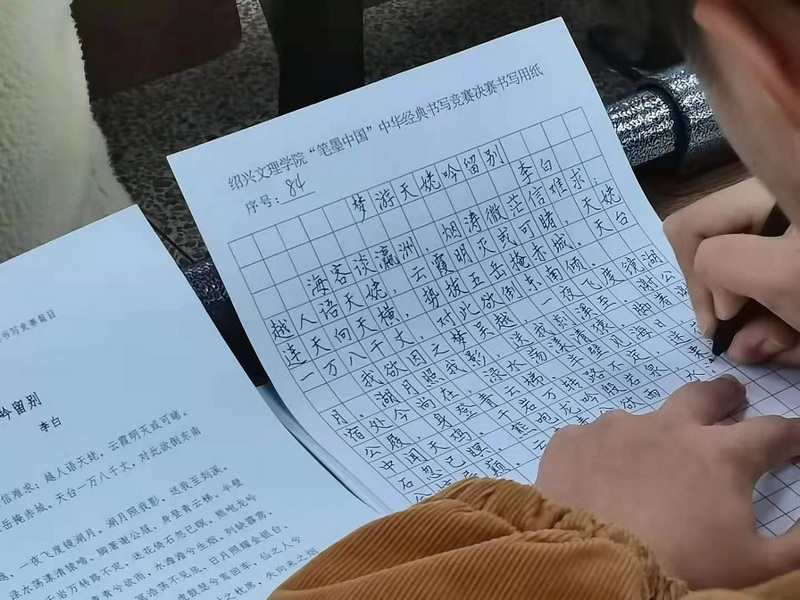 绍兴文理学院“笔墨中国”中华经典书写竞赛决赛书写用纸
序号：84
梦游天姥吟留别
李白
海客谈瀛洲，烟涛微茫信难求；
越人语天姥，云霞明灭或可睹。天姥
连天向天横，势拔五岳掩赤城。天台
一万八千丈，对此欲倒东南倾。
我欲因之梦吴越，一夜飞度镜湖
月。湖月照我影，送我至剡溪。谢公
宿处今尚在，渌水荡漾清猿啼。脚着谢
公屐，身登青云梯。半壁见海日，
中闻天鸡。千岩万转路不定，
石忽已暝。熊咆龙吟殷岩泉，
书写竞赛题目
吟留别
李白
信难求；越人语天姥，云霞明灭或可睹。
岳掩赤城。天台一万八千丈，对此欲倒东南
，一夜飞度镜湖月。湖月照我影，送我至剡溪。
渌水荡漾清猿啼。脚著谢公屐，身登青云梯。半壁
千岩万转路不定，迷花倚石忽已暝。熊咆龙吟
青青兮欲雨，水澹澹兮生烟。列缺霹雳，
浩荡不见底，日月照耀金银台。
鼓瑟兮鸾回车，仙之人兮
之枕席，失向来之烟